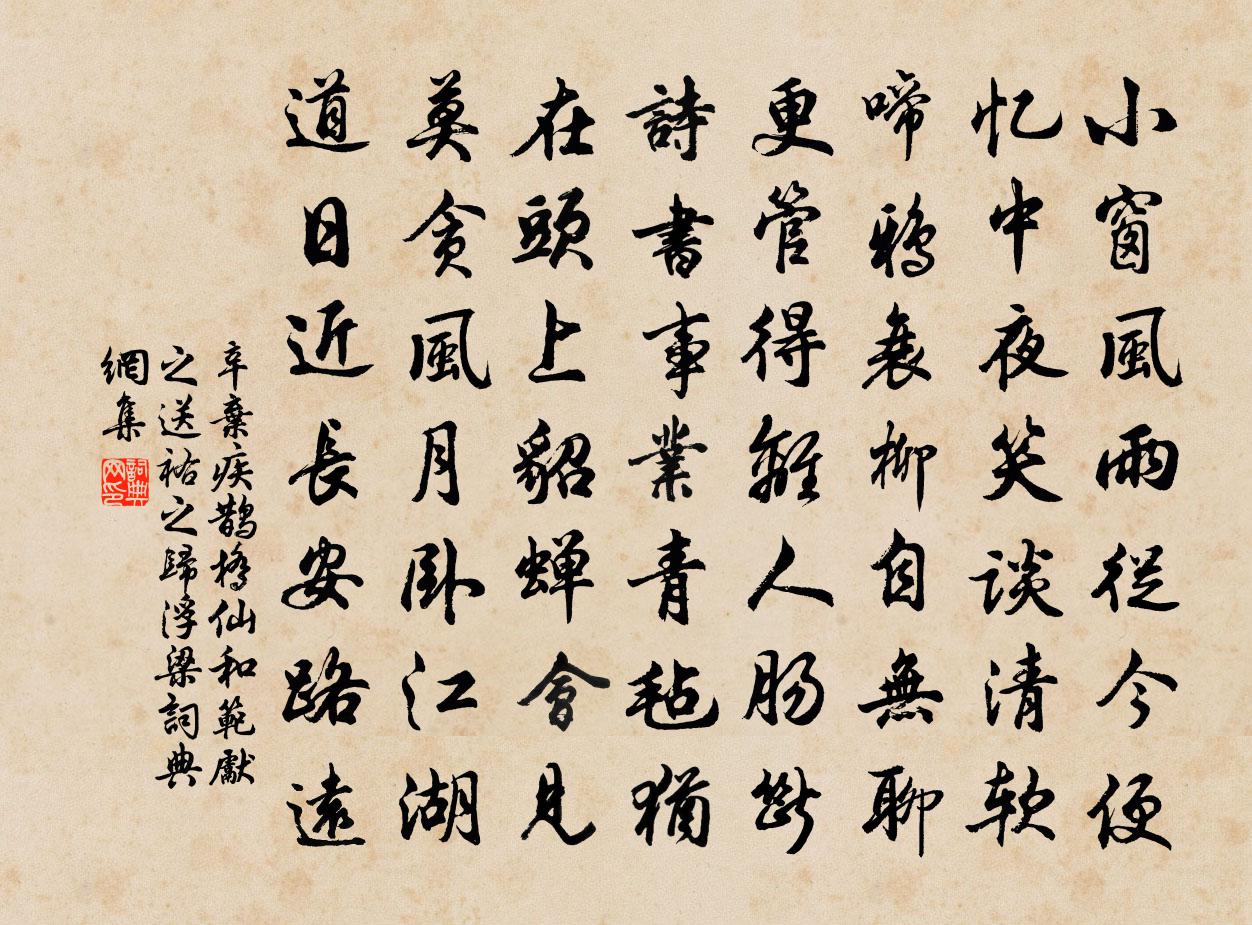 小窗風雨從今便
忆中夜笑談清软
啼鴉衰柳自無聊
更管得離人肠斷
詩書事業青毡猶
在頭上貂蝉會見
莫贪風月卧江湖
道日近長安路遠
辛棄疾鹊橋仙和範獻
之送祐之歸浮梁詞典
網集
詞典网印